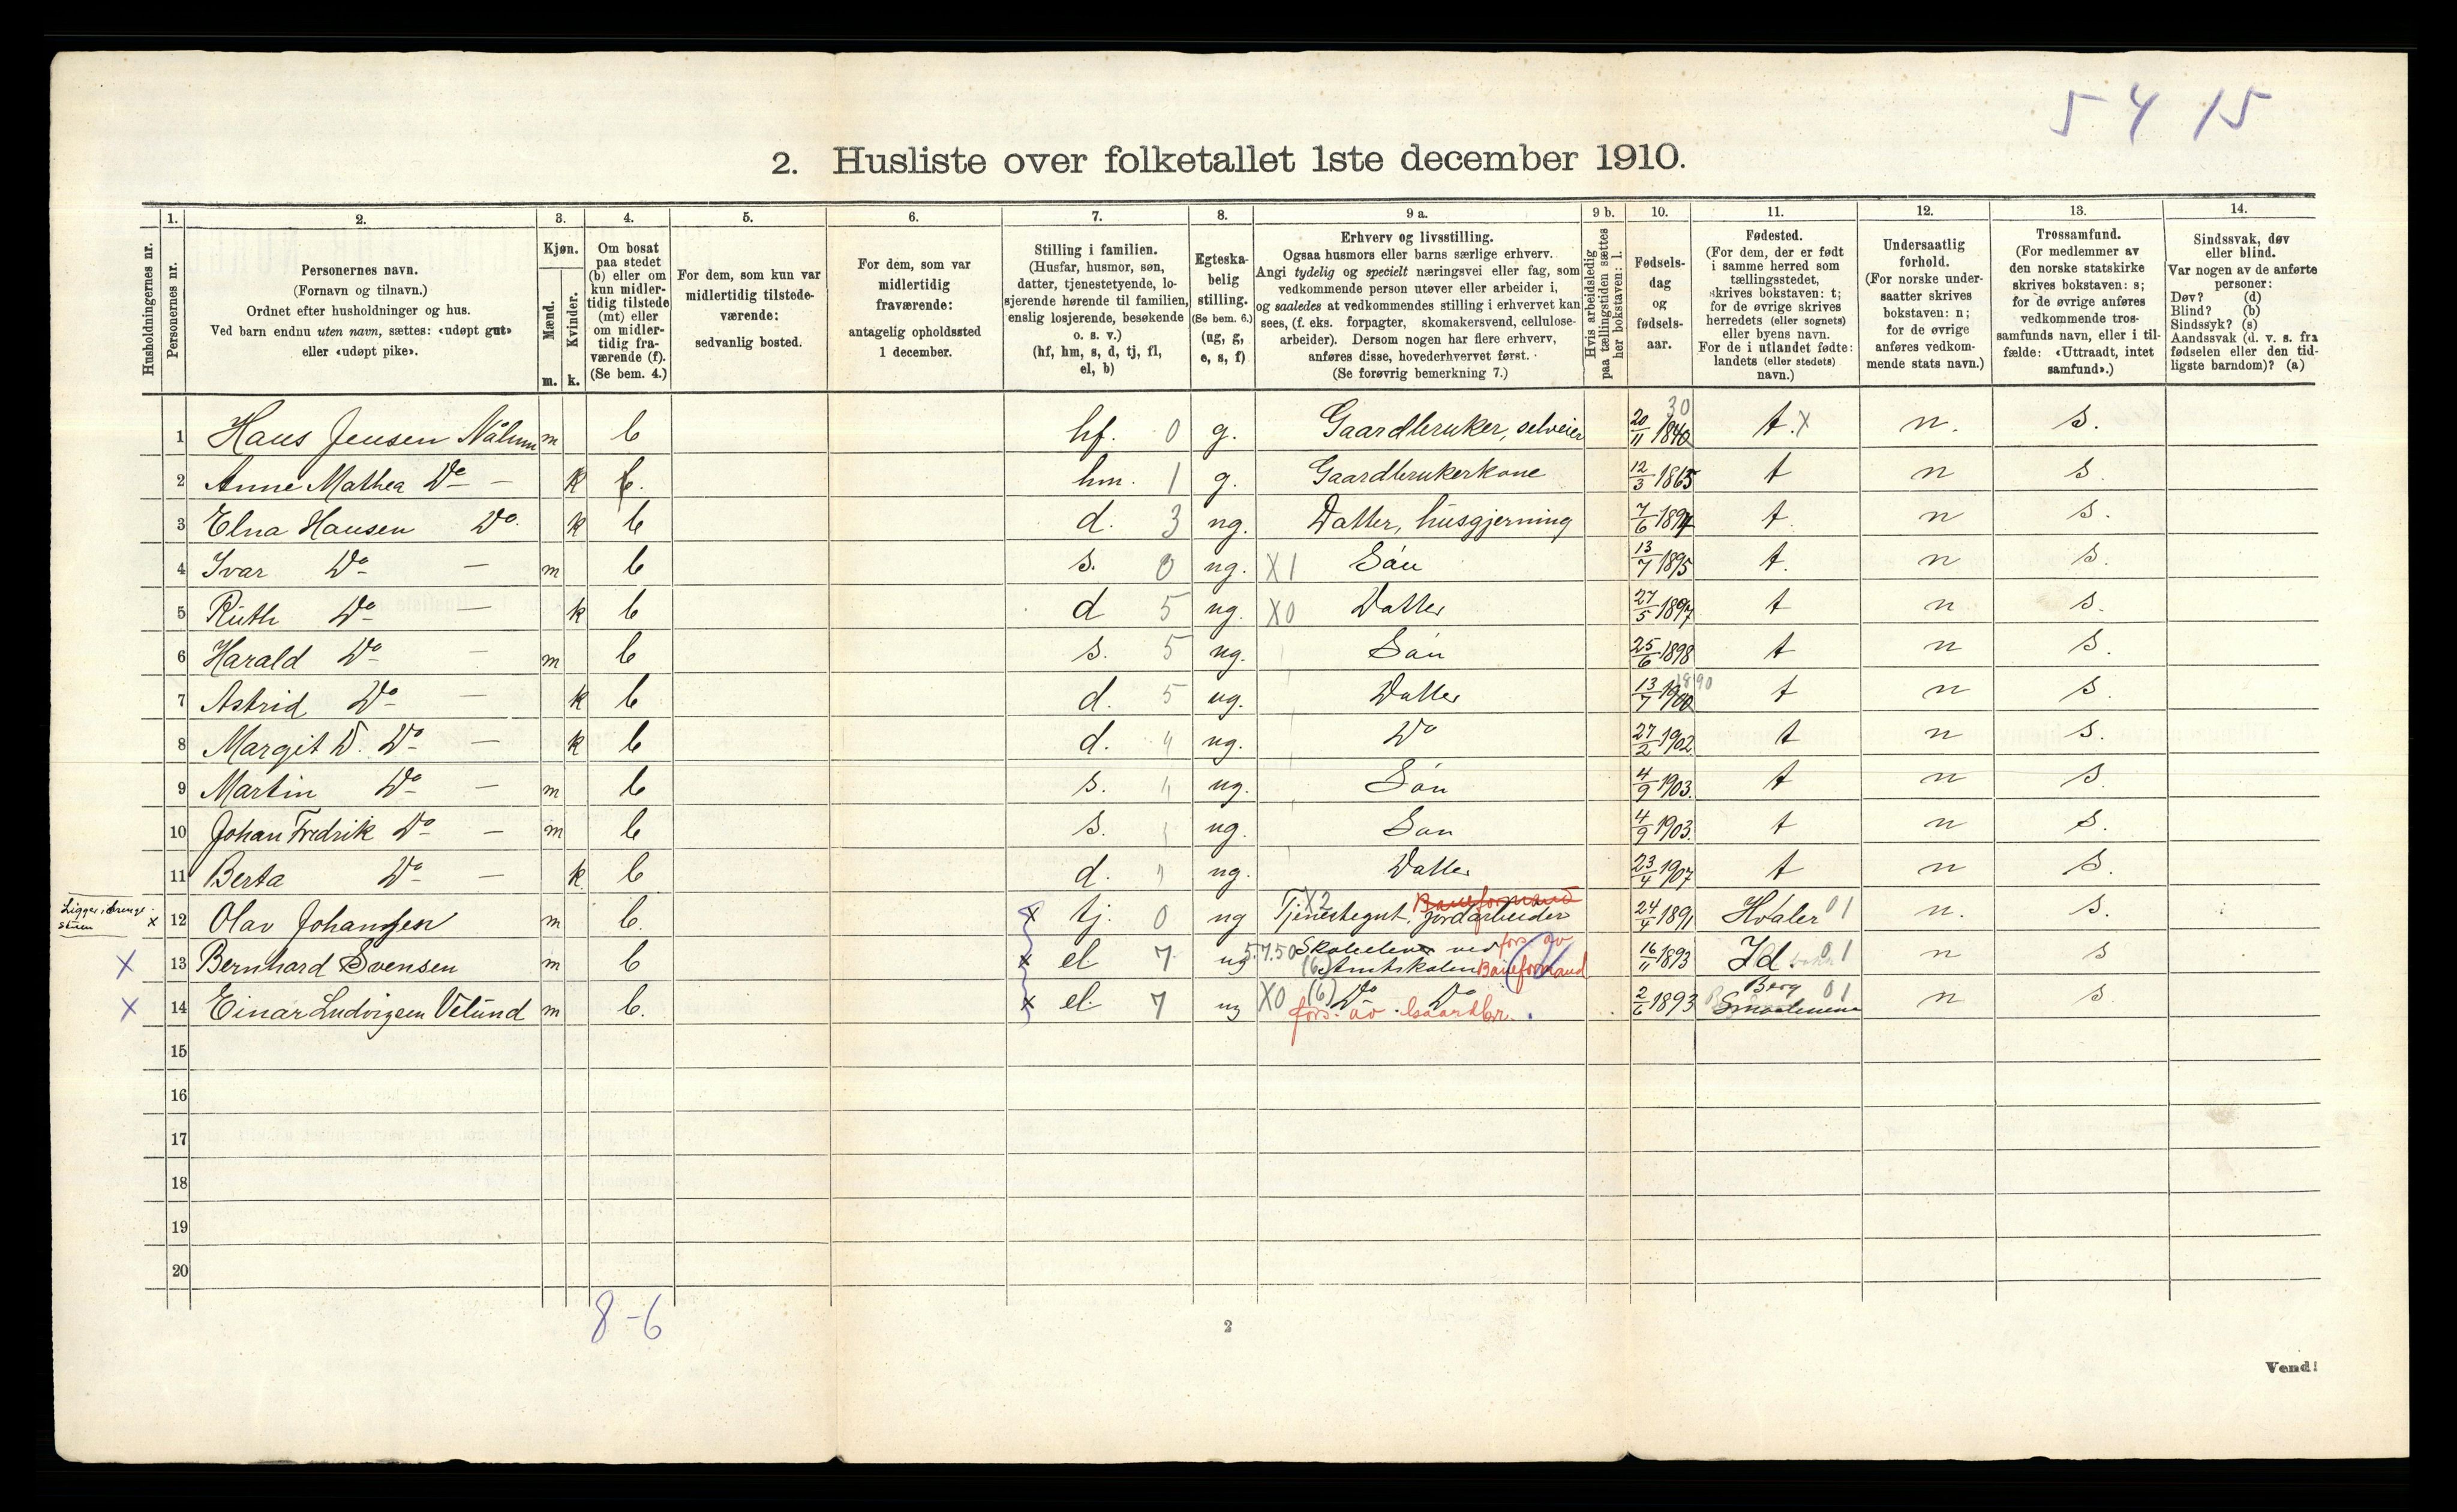 54 15
2. Husliste over folketallet 1ste december 1910.
Husholdningernes nr.
1.
Personernes nr.
2.
Personernes navn.
(Fornavn og tilnavn.)
Ordnet efter husholdninger og hus.
Ved barn endnu uten navn, sættes: «udøpt gut»
eller «udøpt pike».
3.
Kjøn.
Mænd.
Kvinder.
m. k.
4.
Om bosat
paa stedet
(b) eller om
kun midler-
tidig tilstede
(mt) eller
om midler-
tidig fra-
værende (f).
(Se bem. 4.)
5.
For dem, som kun var
midlertidig tilstede-
værende:
sedvanlig bosted.
6.
For dem, som var
midlertidig
fraværende:
antagelig opholdssted
1 december.
7.
Stilling i familien.
(Husfar, husmor, søn,
datter, tjenestetyende, lo-
sjerende hørende til familien,
enslig losjerende, besøkende
o. s. v.)
(hf, hm, s, d, tj, fl,
el, b)
8.
Egteska-
belig
stilling.
(Se bem. 6.)
(ug, g,
e, s, f)
9 a.
Erhverv og livsstilling.
Ogsaa husmors eller barns særlige erhverv.
Angi tydelig og specielt næringsvei eller fag, som
vedkommende person utøver eller arbeider i,
og saaledes at vedkommendes stilling i erhvervet kan
sees, (f. eks. forpagter, skomakersvend, cellulose-
arbeider). Dersom nogen har flere erhverv,
anføres disse, hovederhvervet først.
(Se forøvrig bemerkning 7.)
9 b.
Hvis arbeidsledig
paa tællingstiden sættes
her bokstaven: l.
10.
Fødsels-
dag
og
fødsels-
aar.
11.
Fødested.
(For dem, der er født
i samme herred som
tællingsstedet,
skrives bokstaven: t;
for de øvrige skrives
herredets (eller sognets)
eller byens navn.
For de i utlandet fødte:
landets (eller stedets)
navn.)
12.
Undersaatlig
forhold.
(For norske under-
saatter skrives
bokstaven: n;
for de øvrige
anføres vedkom-
mende stats navn.)
13.
Trossamfund.
(For medlemmer av
den norske statskirke
skrives bokstaven: s;
for de øvrige anføres
vedkommende tros-
samfunds navn, eller i til-
fælde: «Uttraadt, intet
samfund».)
14.
Sindssvak, døv
eller blind.
Var nogen av de anførte
personer:
Døv? (d)
Blind? (b)
Sindssyk? (s)
Aandssvak (d. v. s. fra
fødselen eller den tid-
ligste barndom)? (a)
30
1 Hans Jensen Nålum m b hf. 0 g. Gaardbruker, selveier 20/11 1840 t. x n. s.
2 Anne Mathea Do — k b. hm. 1 g. Gaardbrukerkone 12/3 1865 t n s.
3 Elna Hansen Do. k b d. 3 ug. Datter, husgjerning 7/6 1894 t. n s.
4 Ivar Do — m b s. 0 ug. X1 Søn 13/7 1895 t. n s.
5 Ruth Do — k b d 5 ug. X0 Datter 27/5 1897 t n s.
6 Harald Do — m b s. 5 ug. Søn 25/6 1898 t n s.
7 Astrid Do — k b d. 5 ug. Datter 13/7 1900 1890 t n s.
8 Margit D. Do — k b d. " ug. Do 27/2 1902 t n s.
9 Martin Do — m b s. " ug. Søn 4/9 1903. t n s.
10 Johan Fredrik Do — m b s. ug. Søn 4/9 1903. t n s.
11 Berta Do — k b d. " ug. Datter 23/4 1907 t n s.
Ligger i drenge-
stuen
x 12 Olav Johansen m b. x tj. 0 ug X2 Tjenestegut, jordarbeider Baneformand 24/4 1891 Hvaler 01 n. s.
x 13 Bernhard Svensen m b x el 7 ug 5.7.50 Skoleelev ved fors. av
(6) Amtskolen Baneformand 16/11 1893 Id. 01 n s
x 14 Einar Ludvigsen Velund m b. x el 7 ug X0 (6) Do Do 2/6 1893 Berg 01
fors. av Gaardbr. Smaalenene n s
15
16
17
18
19
20
8-6
2
Vend!